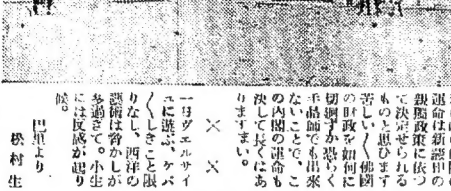 運命は新證中の
親鸞政策に依つ
て決定せられる
ものと思ひます
苦しい〱佛國
の財政を如何に
切廻すか恐らく
手品師でも出來
ないことで、こ
の内閣の運命も
決して長くはあ
りますまい。
××
一日ヴエルサイ
ユに遊ぶ、ケバ
〱しきこと限
りなし、西洋の
藝術は脅かしが
多過ぎて。小生
には反感が起り
候。
巴里より
松村生